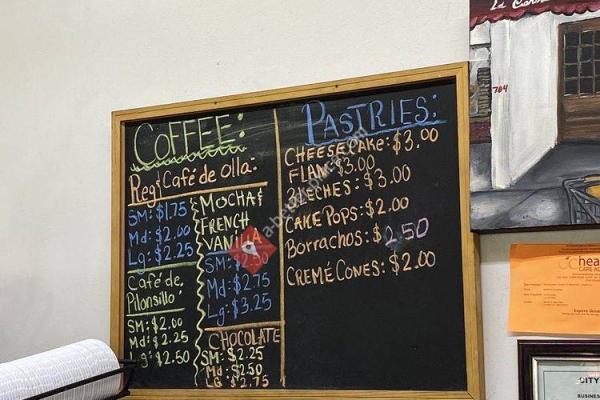 COFFEE:
Reg & Café de olla:
SM: $1.75
Md: $2.00
Lg: $2.25
Café de
Piloncillo
SM: $2.00
Md: $2.25
Lg: $2.50
MOCHA &
FRENCH
VANILLA
SM: $2.50
Md: $2.75
Lg: $3.25
CHOCOLATE
SM: $2.25
Md: $2.50
LG $2.75
PASTRIES:
CHEESECAKE: $3.00
FLAN $3.00
3LECHES: $3.00
CAKE POPS: $2.00
Borrachos: $2.50
CREMÉ CONES: $2.00
704
CITY
BUSINESS